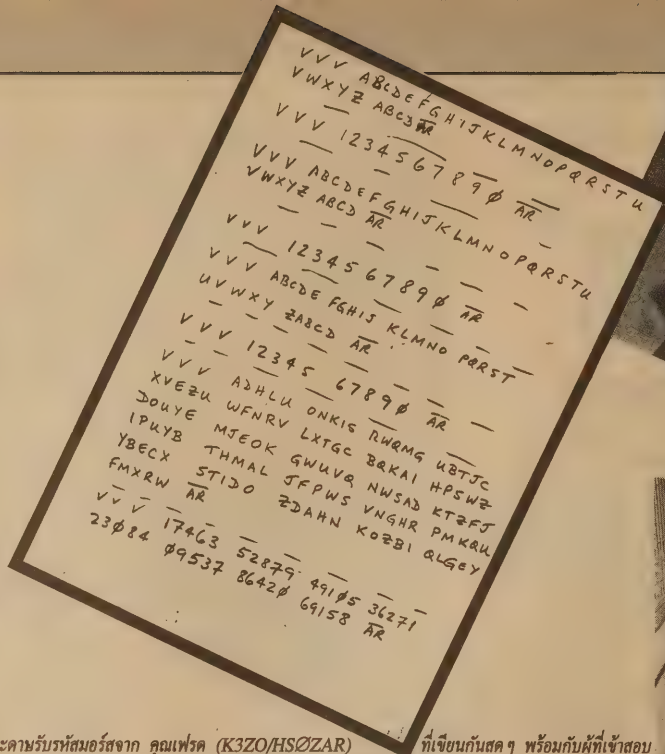 VVV ABCDEFGHIJKLMNOPQRSTU
VWXYZ ABCD A̅R̅
VVV 1234567890̸ A̅R̅
VVV ABCDEFGHIJKLMNOPQRSTU
VWXYZ ABCD A̅R̅
VVV 1234567890̸ A̅R̅
VVV ABCDE FGHIJ KLMNO PQRST
UVWXY ZABCD A̅R̅
VVV 12345 67890̸ A̅R̅
VVV ADHLU ONKIG RWQMG UBTJC
XVEZU WFNRV LXTGC BQKAI HPSWZ
DOUYE MJEOK GWUVQ NWSAD KTZFJ
IPUYB THMAL JFPWS VNGHR PMKQU
YBECX STIDO ZDAHN KOZBI QLGEY
FMXRW A̅R̅
VVV 17463 52879 4910̸5 36271
230̸84 0̸9537 86420̸ 69158 A̅R̅
ะดาษรับรหัสมอร์สจาก คุณเฟรด (K3ZO/HSØZAR) ที่เขียนกันสดๆ พร้อมกับผู้ที่เข้าสอบ